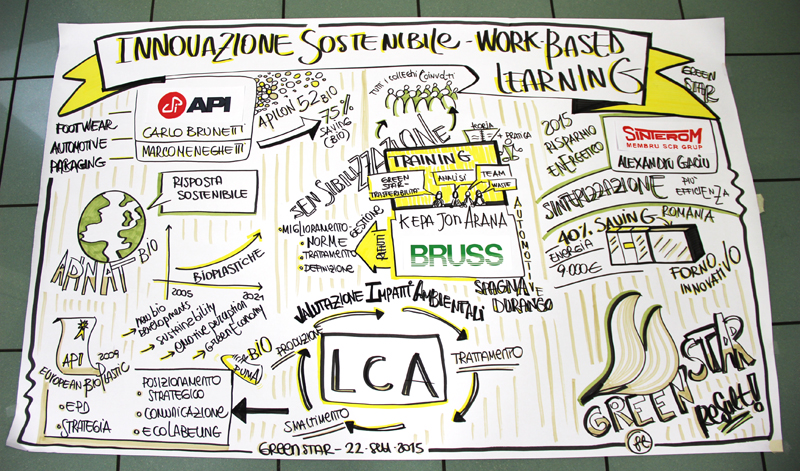 INNOVAZIONE SOSTENIBILE - WORK-BASED
LEARNING
GREEN
STAR
FOOTWEAR
AUTOMOTIVE
API
CARLO BRUNETTI
MARCO MENEGHETTI
APILON 52 BIO
75%
SAVING
(BIO)
TUTTI I COLLEGHI COINVOLTI
RISPOSTA
SOSTENIBILE
APINAT BIO
BIOPLASTICHE
2005
2021
NEW BIO
DEVELOPMENTS
SUSTAINABILITY
GREEN ECONOMY
API
2009
EUROPEAN BIOPLASTIC
EPD
STRATEGIA
POSIZIONAMENTO
STRATEGICO
COMUNICAZIONE
ECOLABELING
SENSIBILIZZAZIONE
TEORIA
PRATICA
TRAINING
GREEN
STAR
TRASFERIBILITÀ
ANALISI
TEAM
WASTE
KEPA JON ARANA
BRUSS
AUTOMOTIVE
SPAGNA
DURANGO
GESTIONE
RIFIUTI
MIGLIORAMENTO
NORME
TRATTAMENTO
DEFINIZIONE
VALUTAZIONE IMPATTI AMBIENTALI
LCA
PRODUZIONE
TRATTAMENTO
SMALTIMENTO
2015
RISPARMIO
ENERGETICO
SINTEROM
MEMBRU SCR GRUP
ALEXANDRU GACIU
SINTERIZZAZIONE
PIÙ
EFFICIENZA
40% SAVING
ENERGIA
9.000€
ROMANIA
FORNO
INNOVATIVO
GREEN STAR
RESULT!!
GREEN STAR - 22 - SETT - 2015